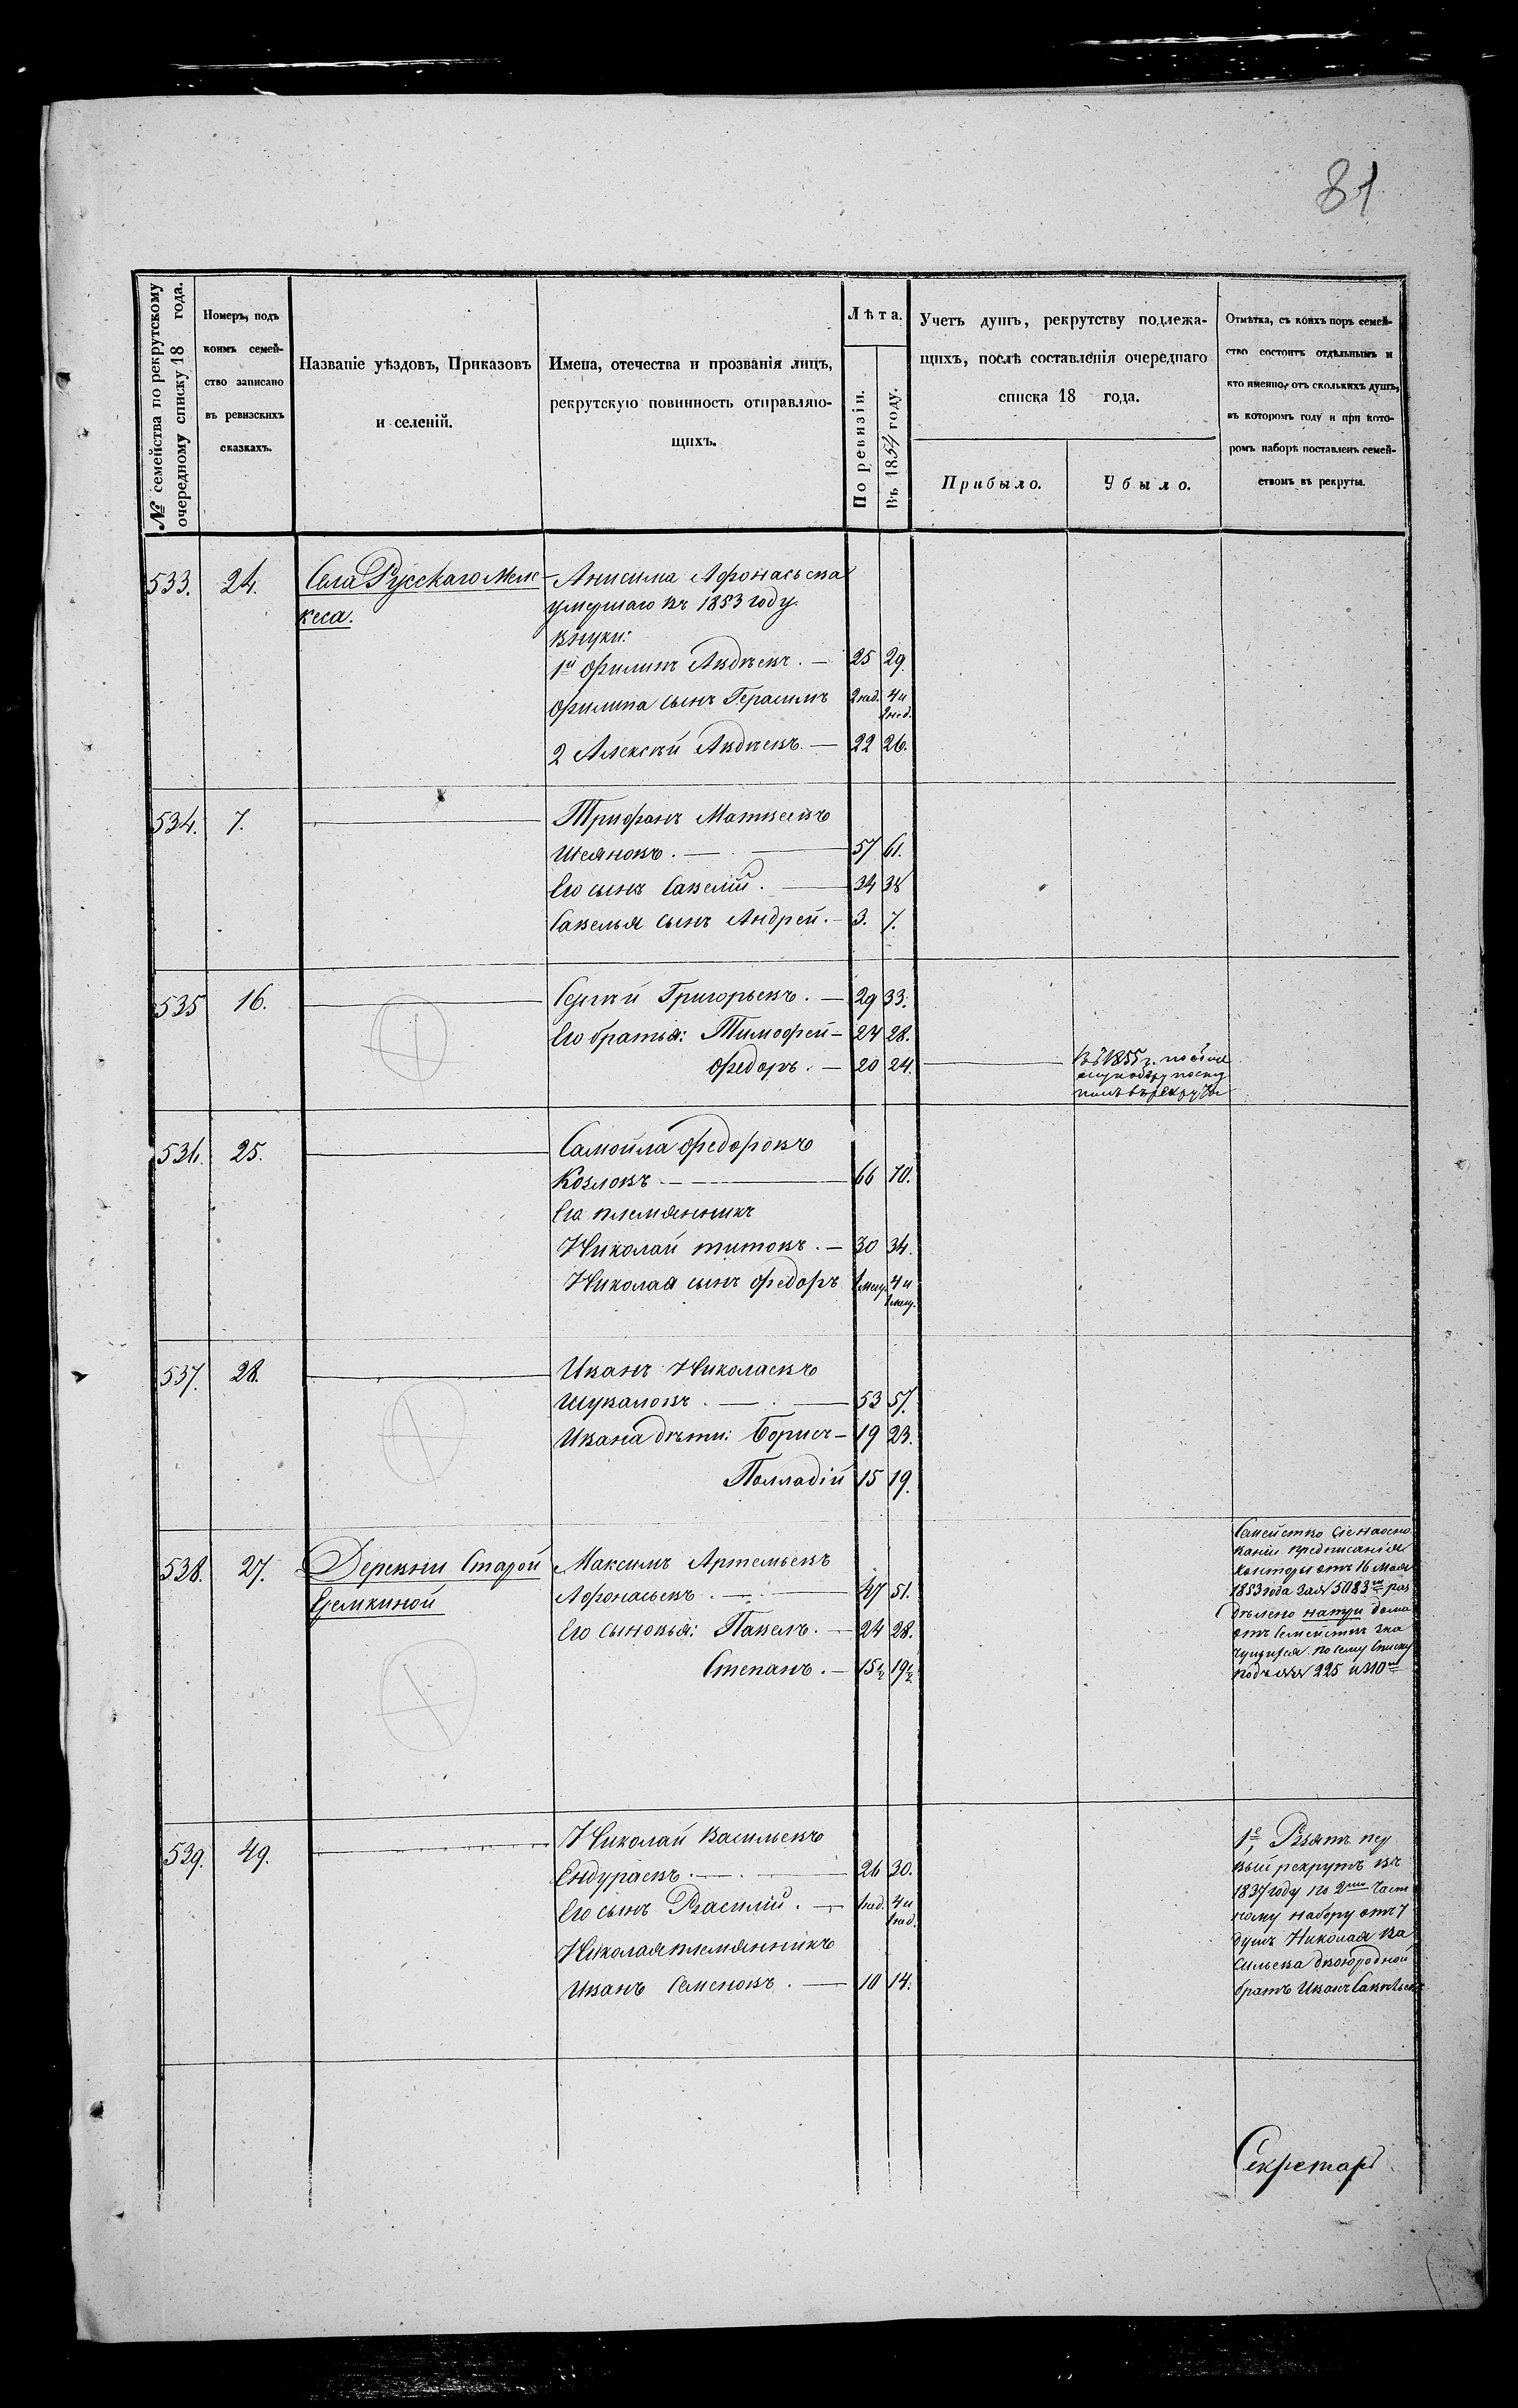 81
№ семейства по рекрутскому
очередному списку 18 года.
Номеръ, подъ
коимъ семей-
ство записано
въ ревизскихъ
сказкахъ.
Названіе уѣздовъ, Приказовъ
и селеній.
Имена, отечества и прозванія лицъ,
рекрутскую повинность отправляю-
щихъ.
Лѣта.
По ревизіи.
Въ 1854 году.
Учетъ душъ, рекрутству подлежа-
щихъ, послѣ составленія очереднаго
списка 18 года.
Прибыло.
Убыло.
Отмѣтка, съ коихъ поръ семей-
ство состоитъ отдѣльнымъ и
кто именно, отъ сколькихъ душъ,
въ которомъ году и при кото-
ромъ наборѣ поставленъ семей-
ствомъ въ рекруты.
533. 24. Села Русскаго Меле- Анисима Афонасьева
кеса. умершаго въ 1853 году
внуки:
1й Филипъ Авдѣевъ. — 25 29.
Филипа сынъ Герасимъ 2 нед. 4 и
2 нед.
2 Алексѣй Авдѣевъ. — 22 26.
534. 7. Трифонъ Матвеевъ
57 61.
Его сынъ Савелій. 34 38
Савелья сынъ Андрей. — 3. 7.
535 16. Сергѣй Григорьевъ. — 29 33.
Его братья: Тимофей — 24 28.
Федоръ. — 20 24. Въ 1855 г. по
въ рекруты
536. 25. Самойла Федоровъ
Козловъ 66 70.
Его племянникъ
Николай Титовъ. — 30 34.
Николая сынъ Федоръ 1 мец. 4 и
1 мец.
537. 28. Иванъ Николаевъ
Шукаловъ. 53 57.
Ивана дѣти: Борисъ — 19 23.
Палладій 15 19.
538. 27. Деревни Старой Максимъ Артемьевъ
Семкиной Афонасьевъ. 47 51.
Его сыновья: Павелъ. — 24 28.
Степанъ. — 15½ 19½
Семейство сіе на осно
ваніи предписанія
Конторы отъ 16 Мая
1853 года за № 5083м раз
дѣлено на три дома
отъ семействъ зна
чущихся по сему списку
подъ №№ 225 и 310м
539. 49. Николай Васильевъ
Ендураевъ. 26 30.
Его сынъ Василій. 1 нед. 4 и
1 нед.
Николая племянникъ
Иванъ Семеновъ. 10 14.
1е, Взятъ пер
вый рекрутъ въ
1837 году по 2му част
ному набору отъ 7
душъ Николая Ва
сильева двоюродной
братъ Иванъ Савельевъ
Секретарь